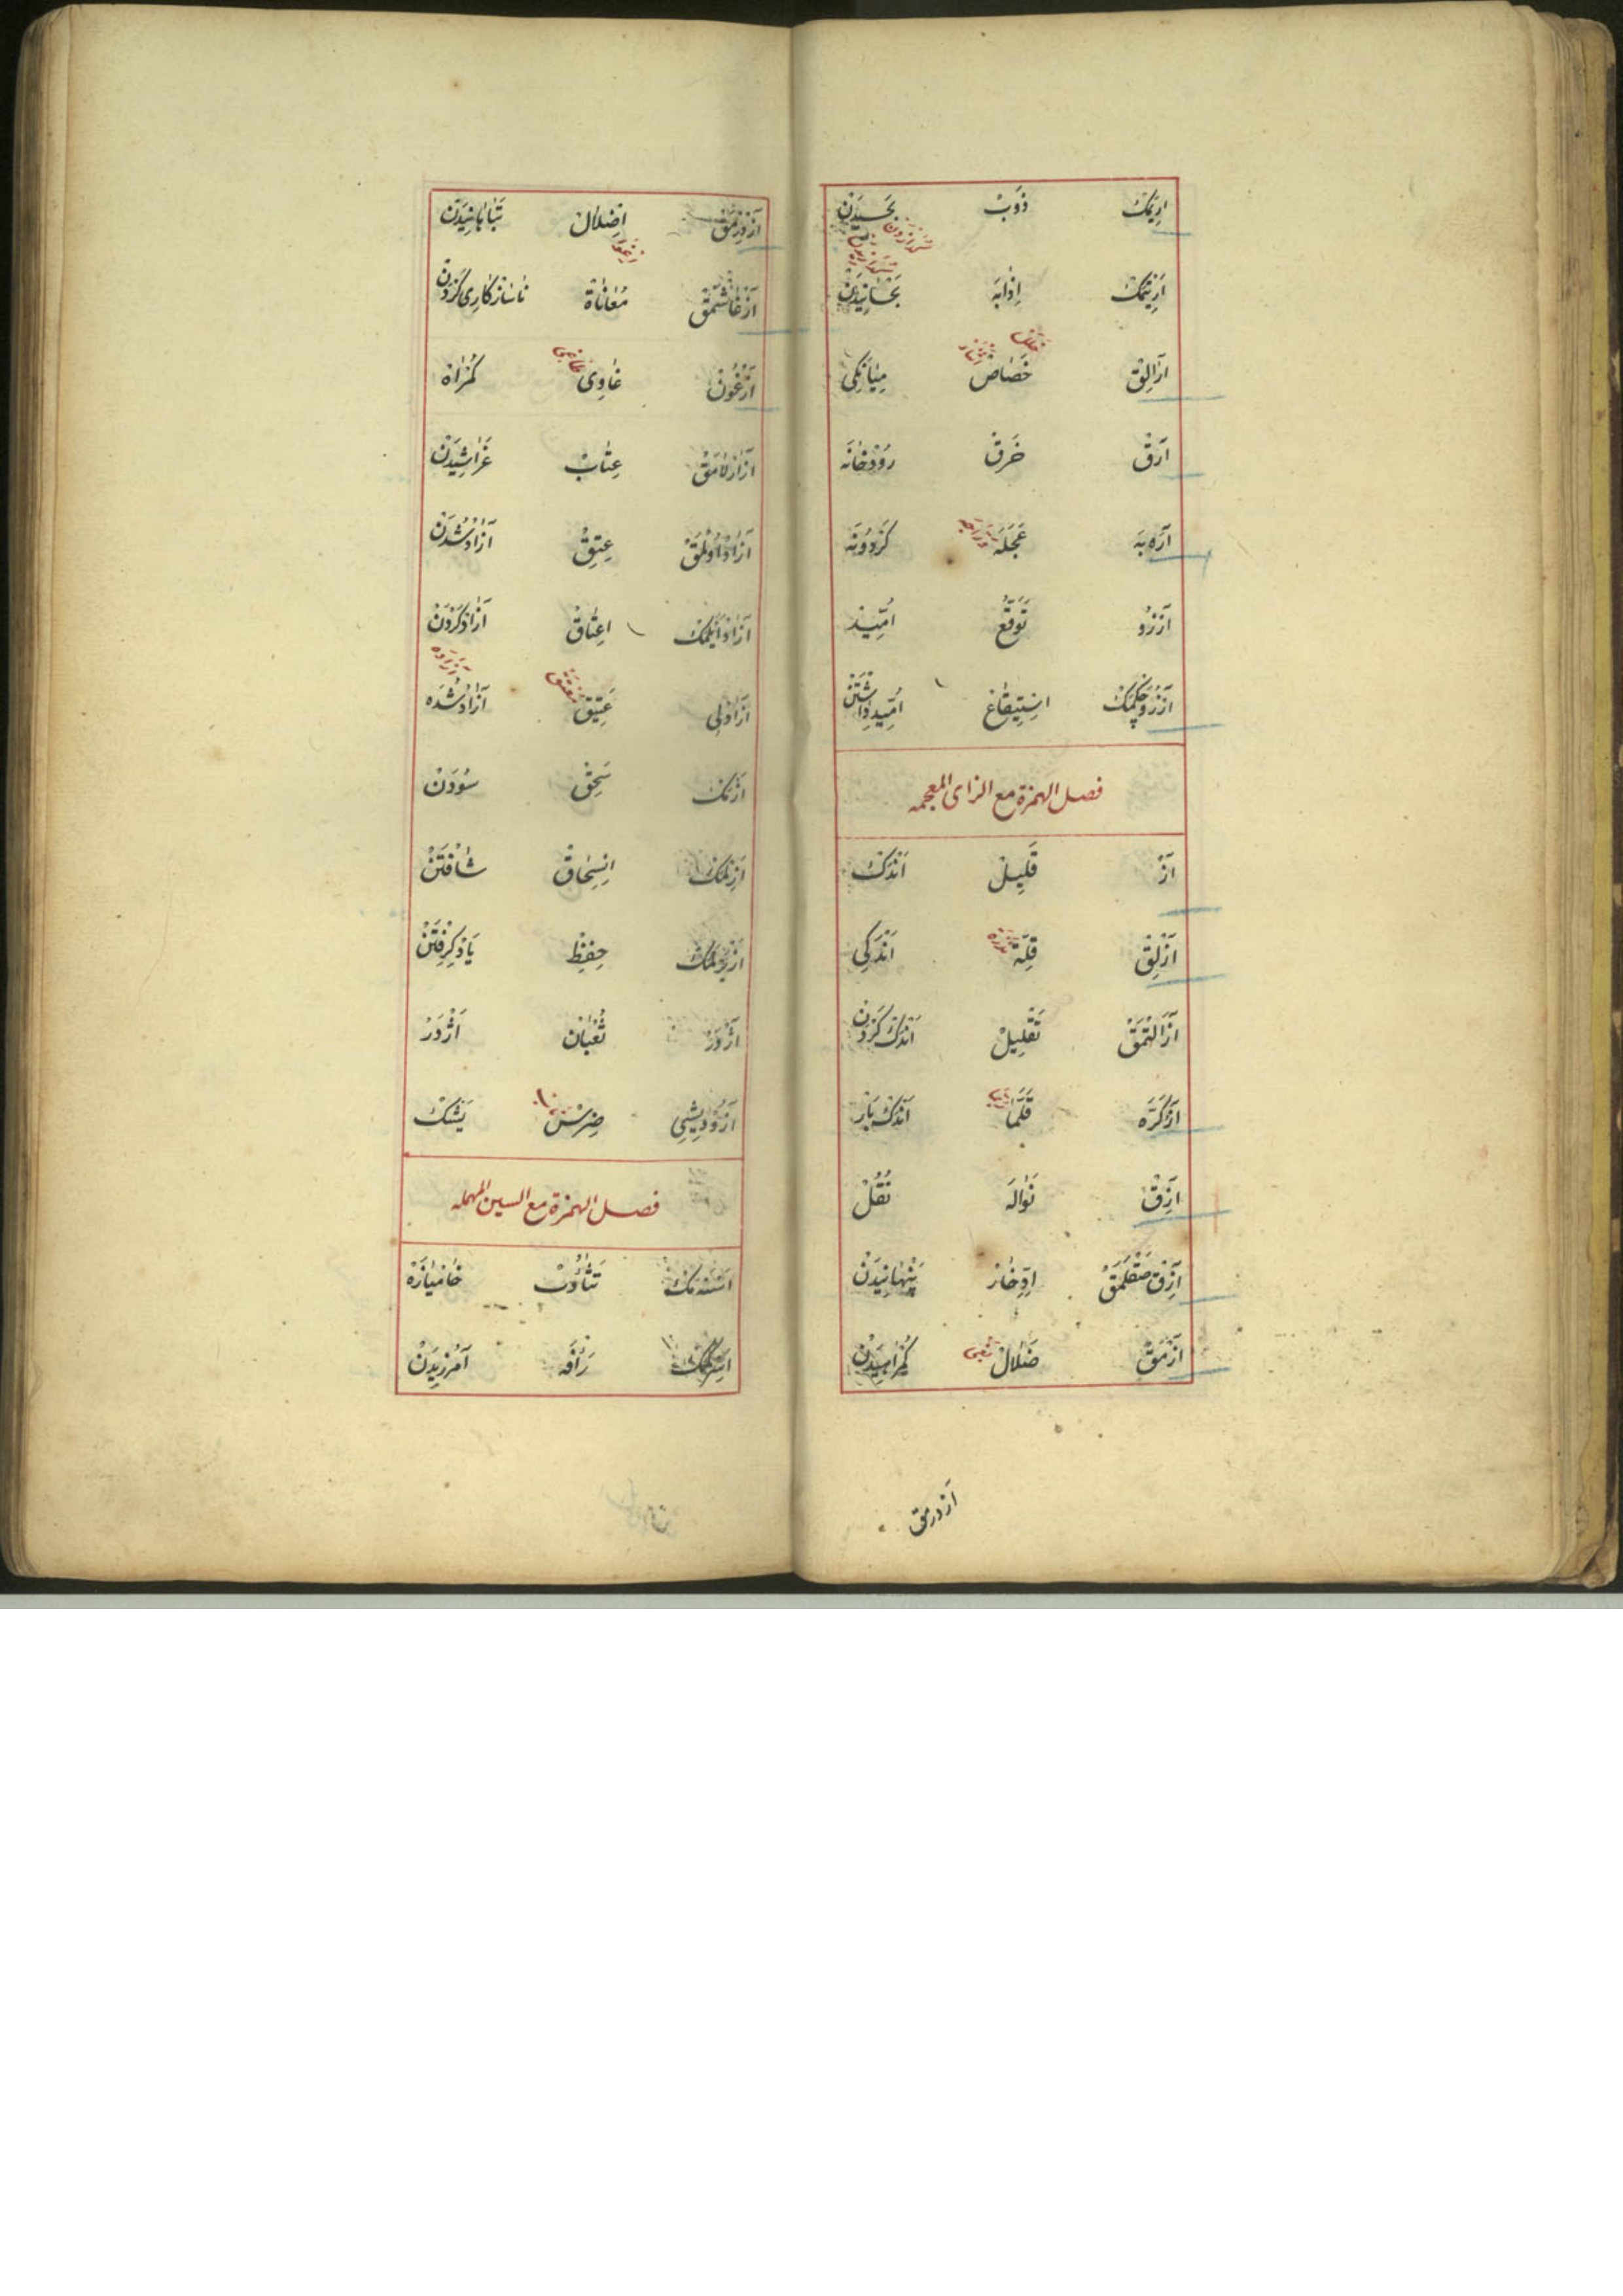 اَرِيمَكْ ذَوَبْ بَخْسِيدَنْ
اَرِيتْمَكْ اِذَابَه بَخْسَانِيدَنْ
آرَالِقْ خَصَاصْ مِيَانَكِى
آرَقْ خَرَقْ رُوْدْخَانَه
آرَه بَه عَجَلَه كَرْدُونَه
آرْزُو تَوَقُّعْ اُمِّيدْ
آرْزُو چَكْمَكْ اِسْتِيقَاعْ اُمِّيد دَاشْتَنْ
فصل الهمزة مع الزاى المعجمه
آزْ قَلِيلْ اَنْدَكْ
آزْلِقْ قِلَّةْ اَنْدَكِى
آزَالْتْمَقْ تَقْلِيلْ اَنْدَكْ كَرْدَنْ
آزْكَرَّه قَلَّمَا اَنْدَكْ بَارْ
آزِقْ نَوَالَه نُقُلْ
آزِقْ صَقْلَمَقْ اِدِّخَارْ پِنْهَانِيدَنْ
آزْمَقْ ضَلَالْ كُمْرَاهِيدَنْ
آزدرمق
آزْدِرْمَقْ اِضْلَالْ تَبَاهَانِيدَنْ
آزْغَاشْمَقْ مُعَانَاةْ نَاسَازْكَارِى كَرْدَنْ
آزْغُونْ غَاوِى كُمْرَاهْ
آزَارْلَامَقْ عِتَابْ غَرَاشِيدَنْ
آزَادْ اُولْمَقْ عِتِقْ آزَادْ شُدَنْ
آزَادْ اَيْلَمَكْ اِعْتَاقْ آزَادْ كَرْدَنْ
آزَادْلِى عَتِيقْ آزَادْ شُدَه
اَزْمَكْ سَحِقْ سُودَنْ
اَزِلْمَكْ اِنْسِحَاقْ
اَزْبَرْلَمَكْ حِفِظْ يَادْ كِرِفْتَنْ
اَژْدَرْ ثُعْبَانْ اَژْدَرْ
آزُو دِيشِى ضِرْسْ يَشْكْ
فصل الهمزة مع السين المهمله
اَسْنَمَكْ تَثَاؤُبْ خَامْيَازَه
اَسِرْكَمَكْ رَأْفَه آمُرْزِيدَنْ